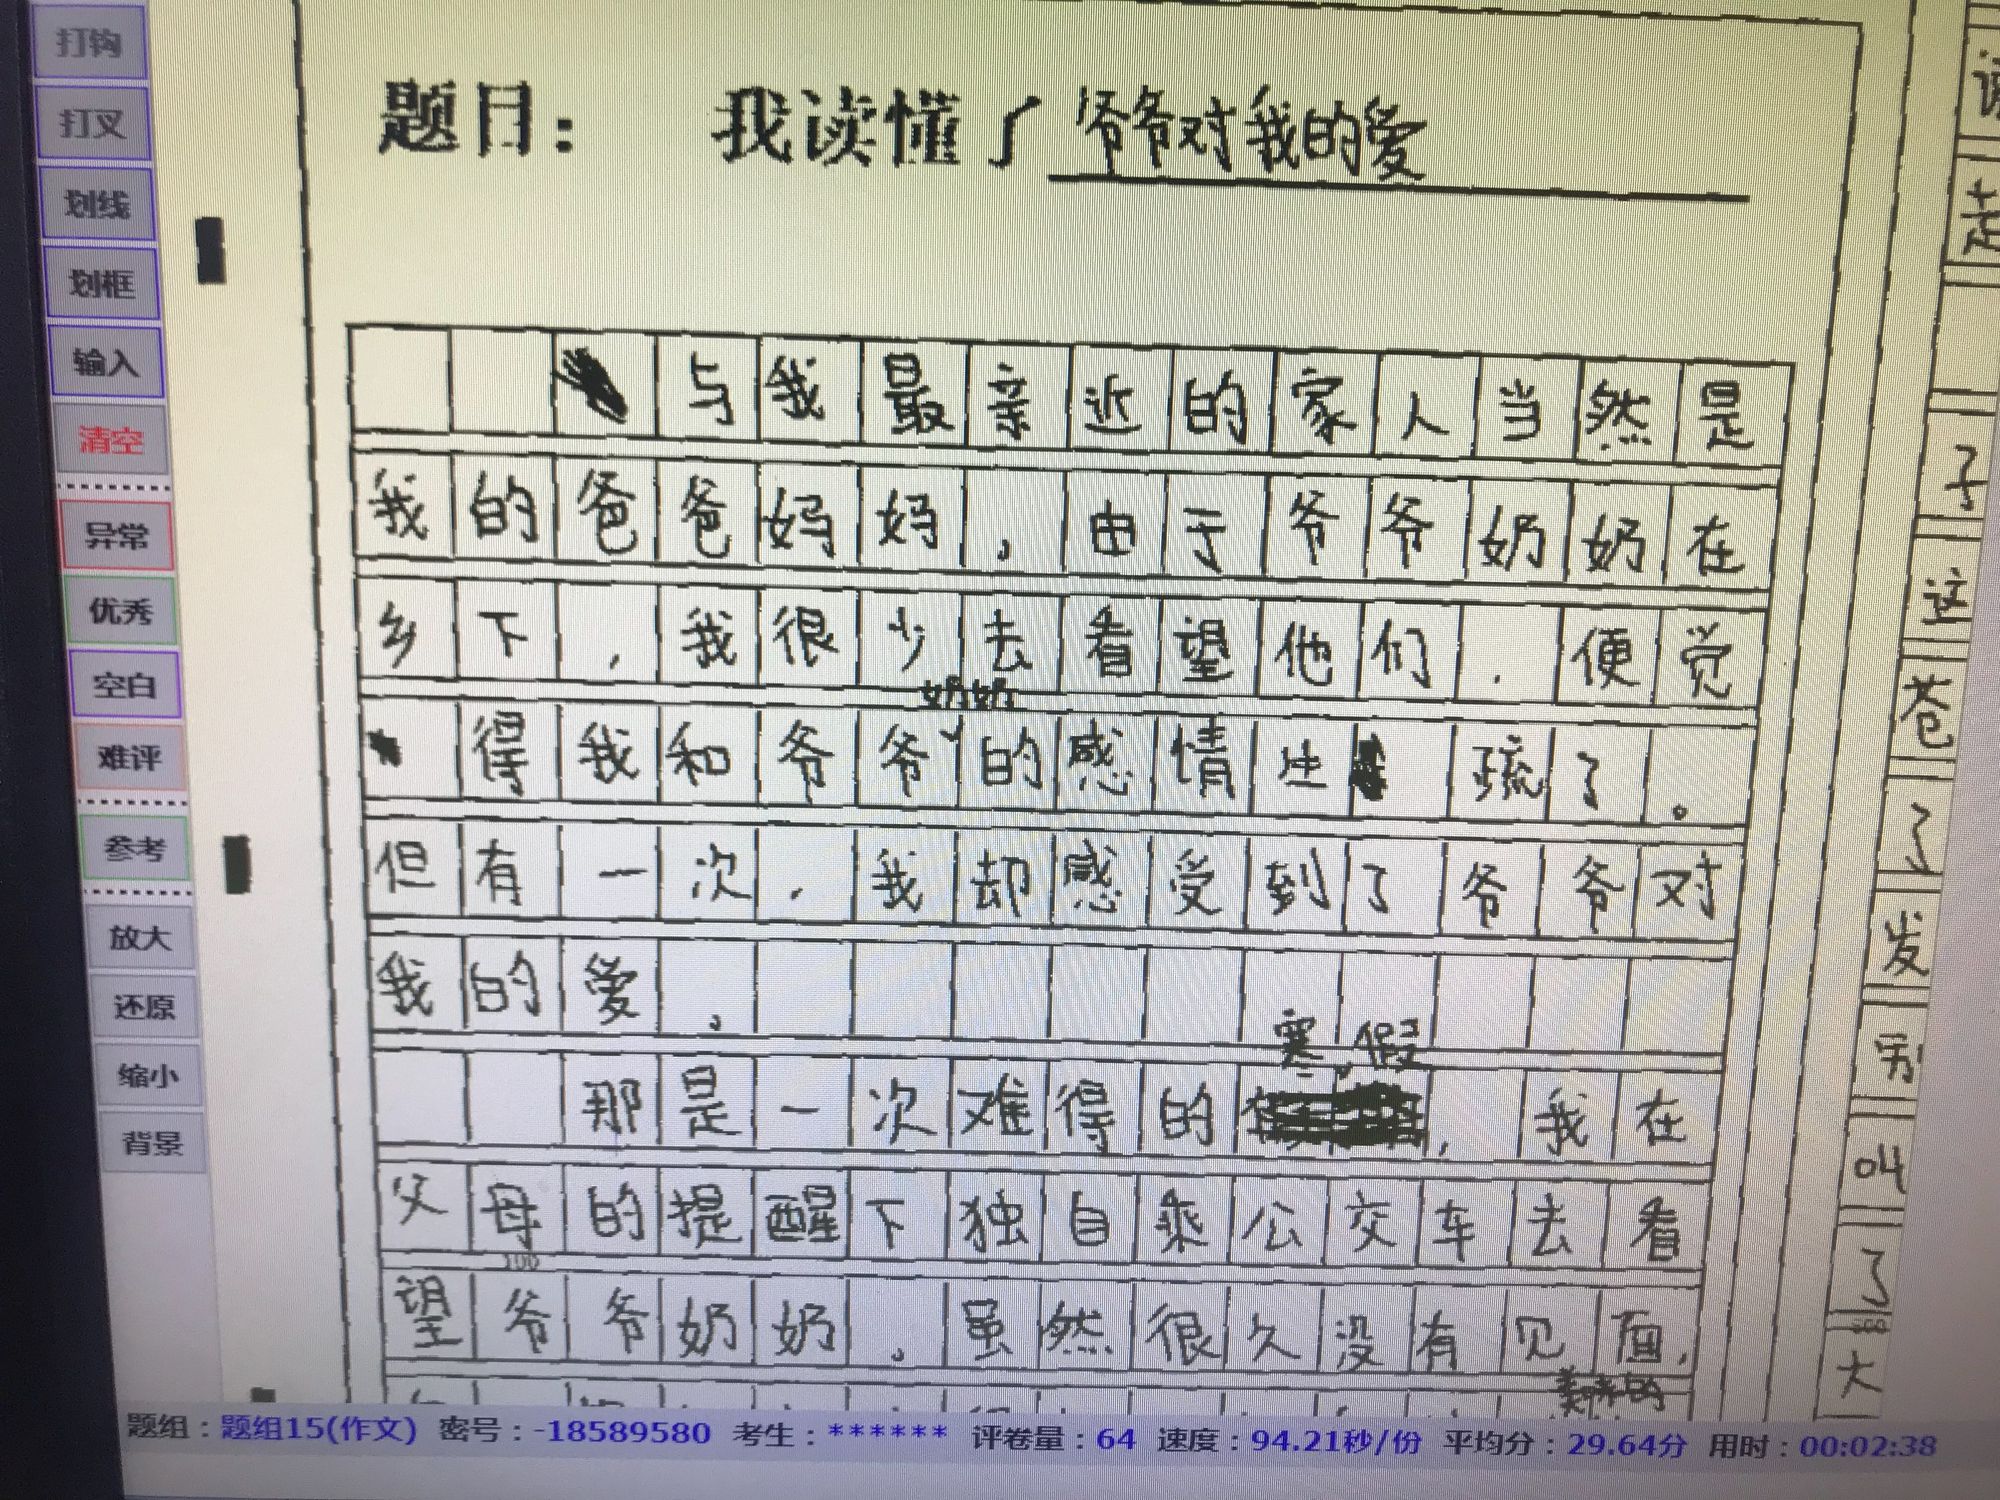 打钩
打叉
划线
划框
输入
清空
异常
优秀
空白
难评
参考
放大
还原
缩小
背景
题目： 我读懂了爷爷对我的爱
与我最亲近的家人当然是
我的爸爸妈妈，由于爷爷奶奶在
乡下，我很少去看望他们，便觉
奶奶
得我和爷爷的感情生疏了。
但有一次，我却感受到了爷爷对
我的爱。
寒假
那是一次难得的，我在
父母的提醒下独自乘公交车去看
100
望爷爷奶奶。虽然很久没有见面，
子
这
苍
了
发
别
叫
了
大
题组：题组15(作文) 密号：-18589580 考生：****** 评卷量：64 速度：94.21秒/份 平均分：29.64分 用时：00:02:38